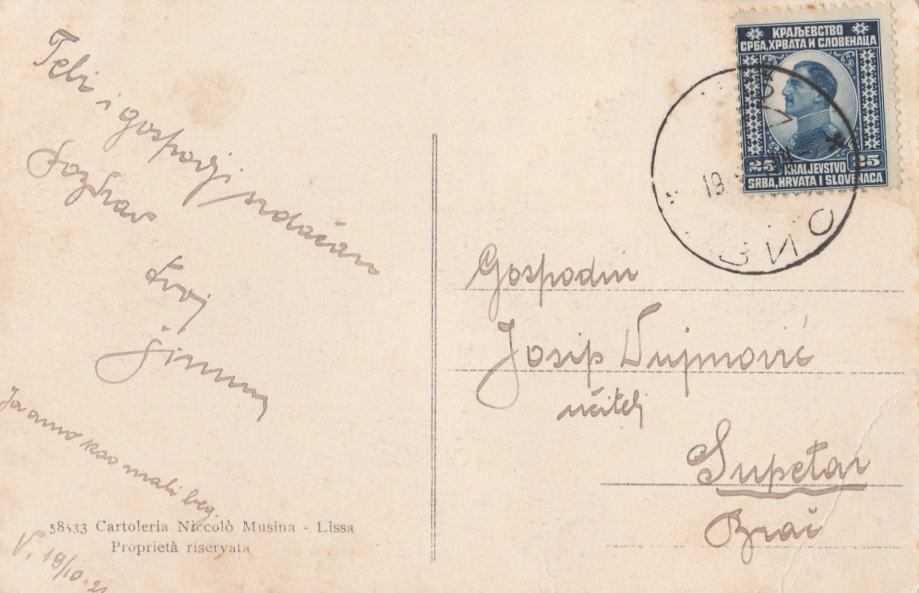 Tebi i gospodji srdačan
Pozdrav
tvoj
Šimun
Ja amo kao mali beg.
V. 19/10. 21
58533 Cartoleria Niccolò Musina - Lissa
Proprietà riservata
КРАЉЕВСТВО
СРБА, ХРВАТА И СЛОВЕНАЦА
25 KRALJEVSTVO 25
SRBA, HRVATA I SLOVENACA
19
Gospodin
Josip Vujnović
učitelj
Supetar
Brač